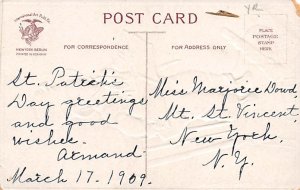 POST CARD
NEW YORK BERLIN
FOR CORRESPONDENCE
FOR ADDRESS ONLY
PLACE
POSTAGE
STAMP
HERE
St. Patrick's
Day greetings
and good
wishes.
Armand.
March 17. 1909.
Miss Marjorie Dowd,
Mt. St. Vincent,
New York,
N.Y.